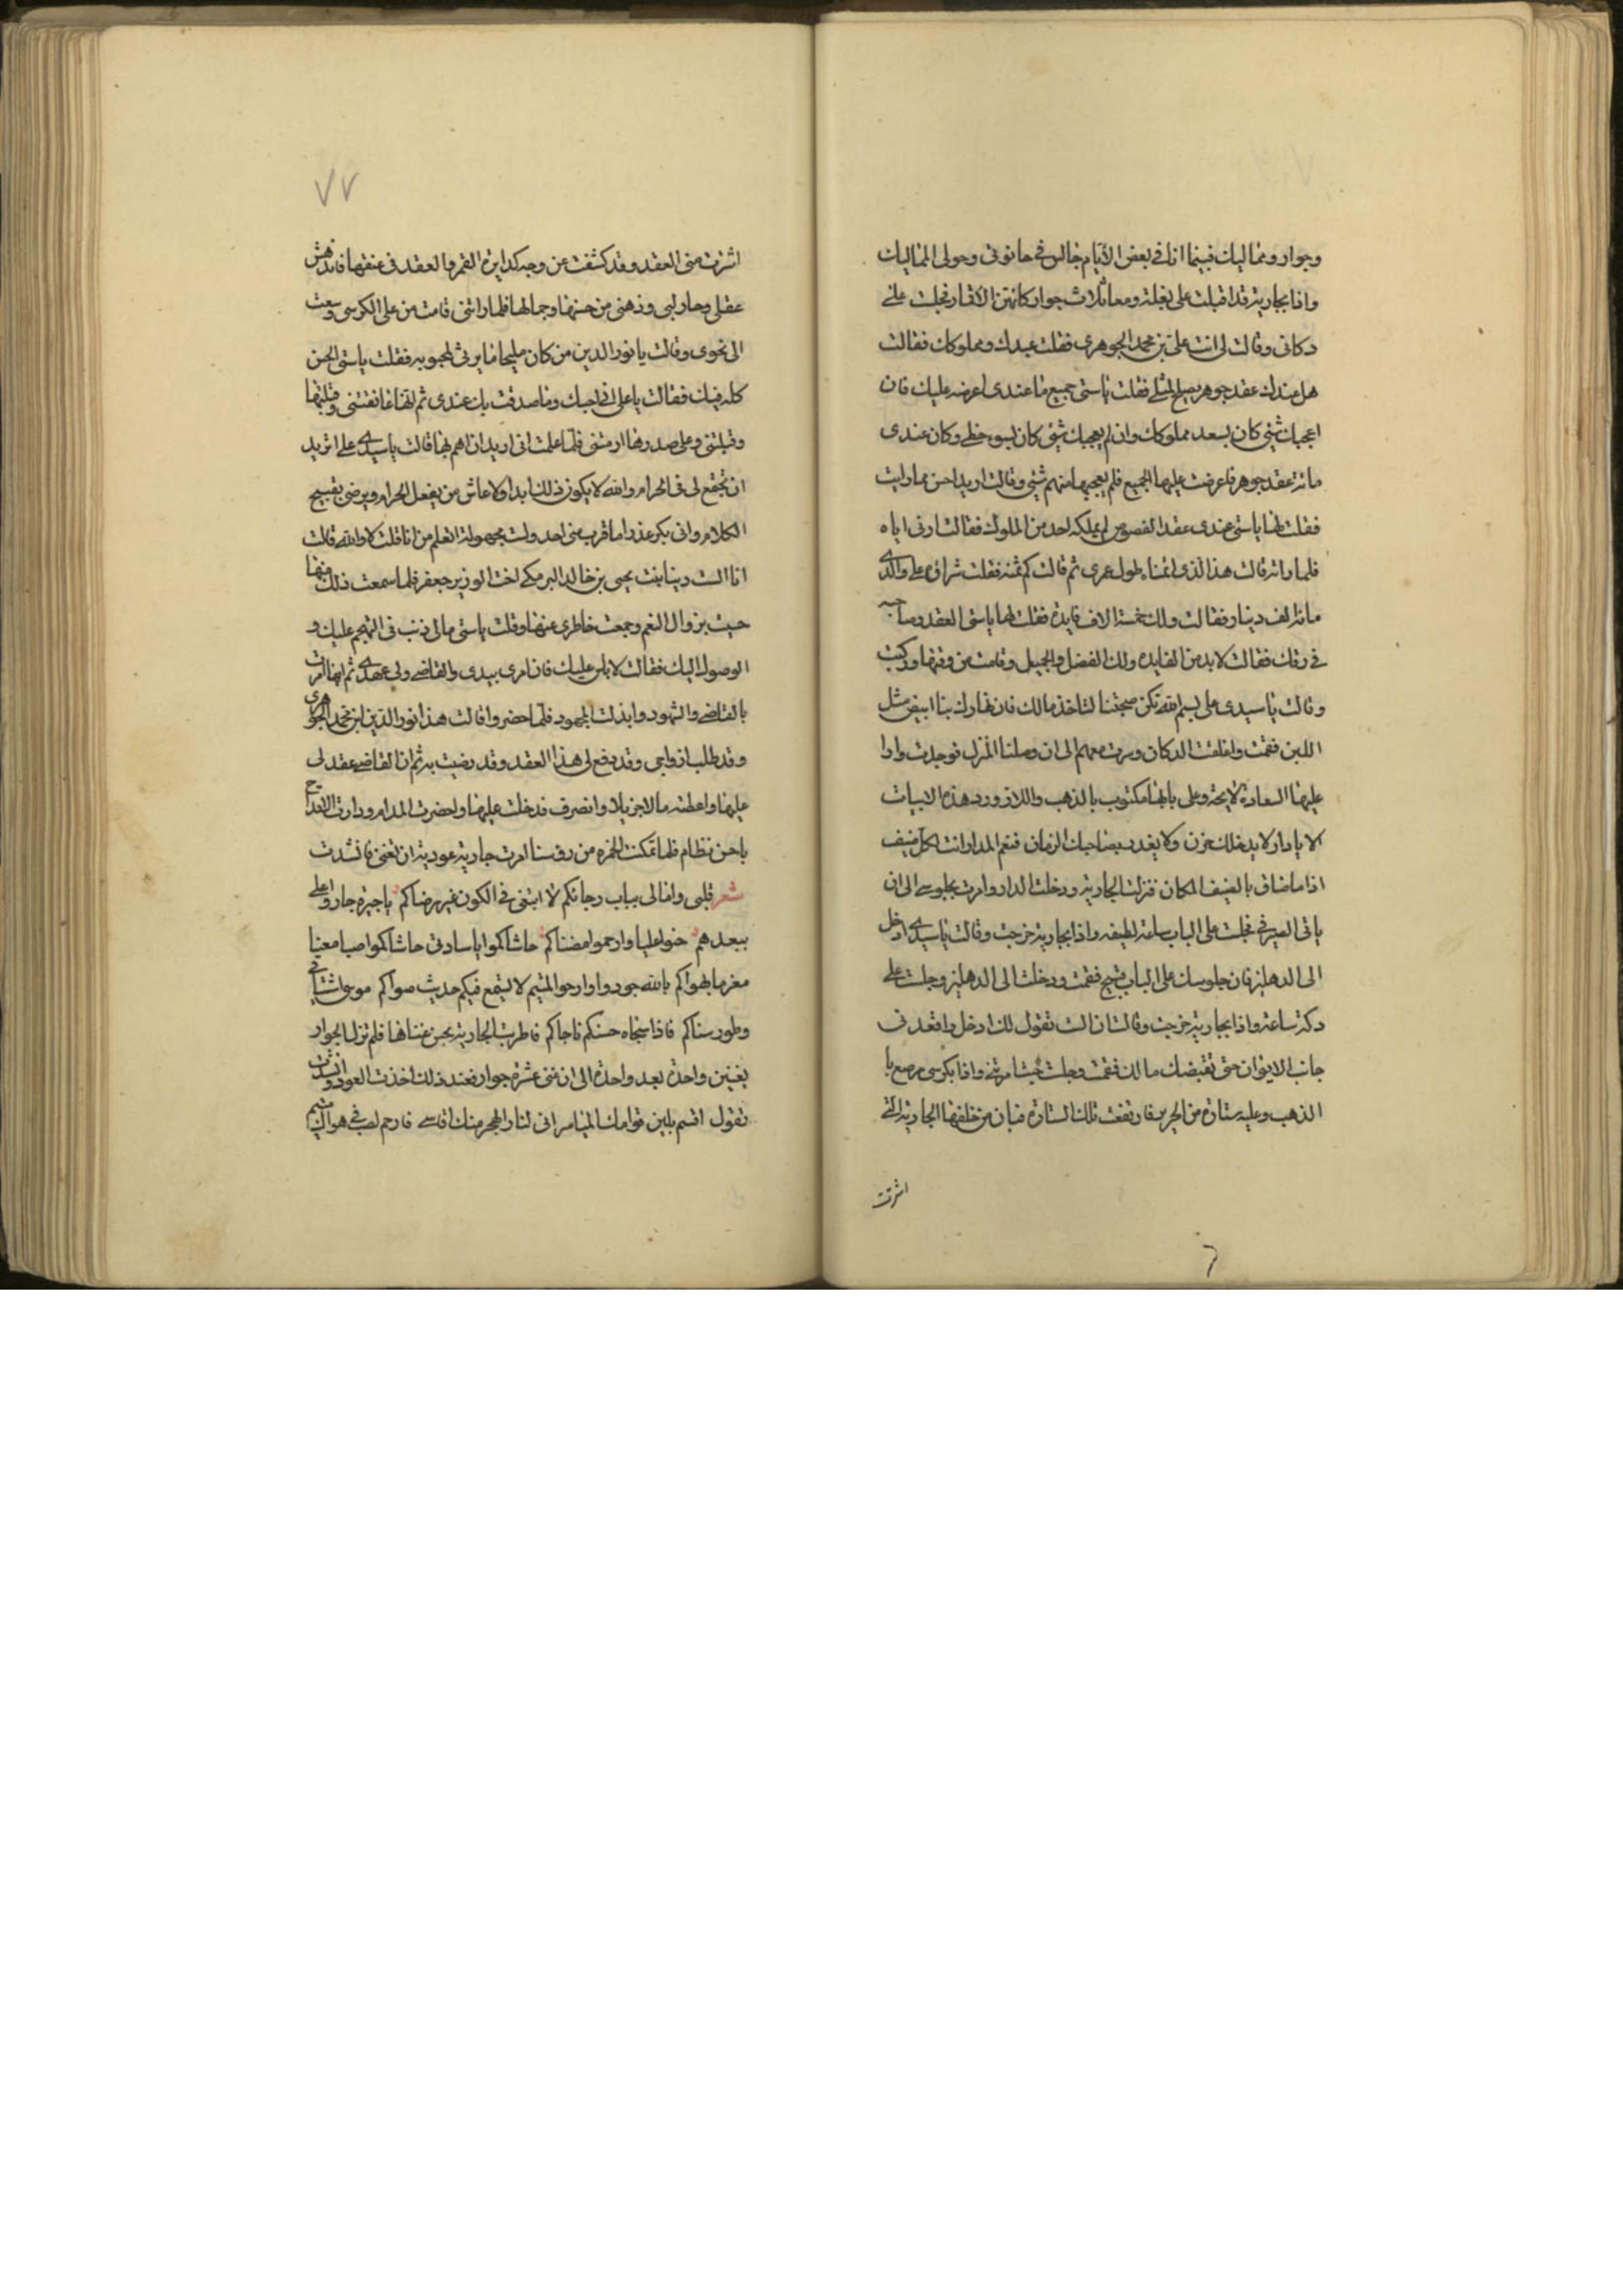 وجوار ومماليك فبينما انا في بعض الأيام جالس في حانوتي وحولي المماليك
واذا بجارية قد اقبلت على بغلة ومعها ثلاث جوار كانهن الاقمار فجلت على
دكاني وقالت لي انت علي بن محمد الجوهري فقلت عبدك ومملوكك فقالت
هل عندك عقد جوهر يصلح لمثلي فقلت ياستي جميع ما عندي اعرضه عليك فان
اعجبك شئ كان بسعد مملوكك وان لم يعجبك شئ كان بسو حظي وكان عندي
مائة عقد جوهر فاعرضت عليها الجميع فلم يعجبها منهم شئ وقالت اريد احسن مما رايت
فقلت لها ياستي عندي عقد الفصوص لم يملكه احد من الملوك فقالت ارني اياه
فلما راته قالت هذا الذي اتمناه طول عمري ثم قالت كم ثمنه فقلت شراؤه على والدي
مائة الف دينار فقالت ولك خمسة الاف فايدة فقلت لها ياستي العقد وصاحبه
في رقك فقالت لابد من الفايده ولك الفضل والجميل وقامت من وقتها وركبت
وقالت ياسيدي علي بسم الله تكن صحبتنا لتاخذ مالك فان نهارك بنا ابيض مثل
اللبن فقمت واغلقت الدكان وسرت معهم الى ان وصلنا المنزل فوجدت دارا
عليها السعادة لايحة وعلى بابها مكتوب بالذهب واللازورد هذه الابيات
الا يا دار لا يدخلك حزن ولا يغدر بصاحبك الزمان فنعم الدار انت لكل ضيف
اذا ما ضاق بالضيف المكان فنزلت الجارية ودخلت الدار وامرت بجلوسي الى ان
ياتي الصيرفي فجلت على الباب ساعة لطيفه واذا بجارية خرجت وقالت ياسيدي ادخل
الى الدهليز فان جلوسك على الباب قبيح فقمت ودخلت الى الدهليز وجلت على
دكة ساعة واذا بجارية خرجت وقالت ان الست تقول لك ادخل واقعد في
جانب الايوان حتى تقبضك مالك فقمت وجلت حيث امرتني واذا بكرسي مرصع با
الذهب وعليه ستارة من الحرير فارتفعت تلك الستارة فبان من خلفها الجارية التي
اشرت
٧٧
اشرت مني العقد وقد كشفت عن وجه كدايرة القمر والعقد في عنقها فاندهش
عقلي وحار لبي وذهني من حسنها وجمالها فلما راتني قامت من على الكرسي وسعت
الى نحوي وقالت يا نور الدين من كان مليحا ما يرثي لمحبوبه فقلت ياستي الحسن
كله فيك فقالت يا علي اني احبك وما صدقت بك عندي ثم لقاها عانقتني وقبلتها
وقبلتني وعلى صدرها ارمتني فلما علمت اني اريد ان اهم بها قالت ياسيدي علي اتريد
ان تجتمع لي في الحرام والله لا يكون ذلك ابدا ولا عاش من يفعل الحرام ويرضى بقبيح
الكلام واني بكر عذرا ما قرب مني احد ولست بمجهولة اتعلم من انا قلت لا والله قالت
انا الست دينا بنت يحيى بن خالد البرمكي اخت الوزير جعفر فلما سمعت ذلك منها
حسيت بزوال النعم وجمعت خاطري عنها وقلت ياستي مالي ذنب في التهجم عليك و
الوصول اليك فقالت لا باس عليك فان امري بيدي والقاضي ولي عهدي ثم انها امرت
بالقاضي والشهود وابذلت المجهود فلما حضروا قالت هذا نور الدين ابن محمد الجوهري
وقد طلب ازواجي وقد دفع لي هذا العقد وقد رضيت به ثم ان القاضي عقد لي
عليها واعطته مالا جزيلا وانصرف فدخلت عليها واحضرت المدام ودارت الاقداح
باحسن نظام فلما تمكنت الخمره من روسنا امرت جارية عودية ان تغني فانشدت
شعر قلبي وامالي بباب رجائكم لا ابتغي في الكون غير رضاكم يا جيرة جاروا على
ببعدهم حنوا عليا وارحموا مضناكم حاشاكموا يا سادتي حاشاكموا صبا معنيا
مغرما بهواكم بالله جودوا وارحموا المتيم لا ليتمع فيكم حديث سواكم موسى اشتياقي
وطور سناكم فاذا سجاه حسنكم ناجاكم فاطربت الجارية بحسن غنائها فلم تزل الجوار
يغنين واحدة بعد واحدة الى ان غني عشرة جوار فعند ذلك اخذت العود وانشدت
تقول اقسم بلين قوامك المياس اني لنار الهجر منك اقاسي فارحم لصب في هواك متيم